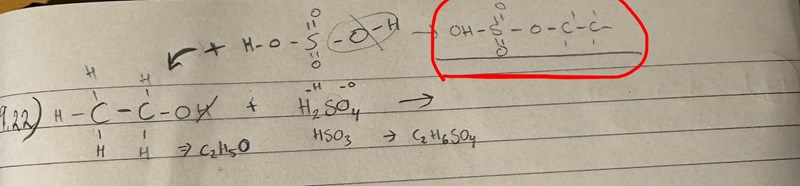 + H-O-S-O-H → OH-S-O-C-C-
9.22) H-C-C-OH + H₂SO₄ →
⇒ C₂H₅O HSO₃ → C₂H₆SO₄